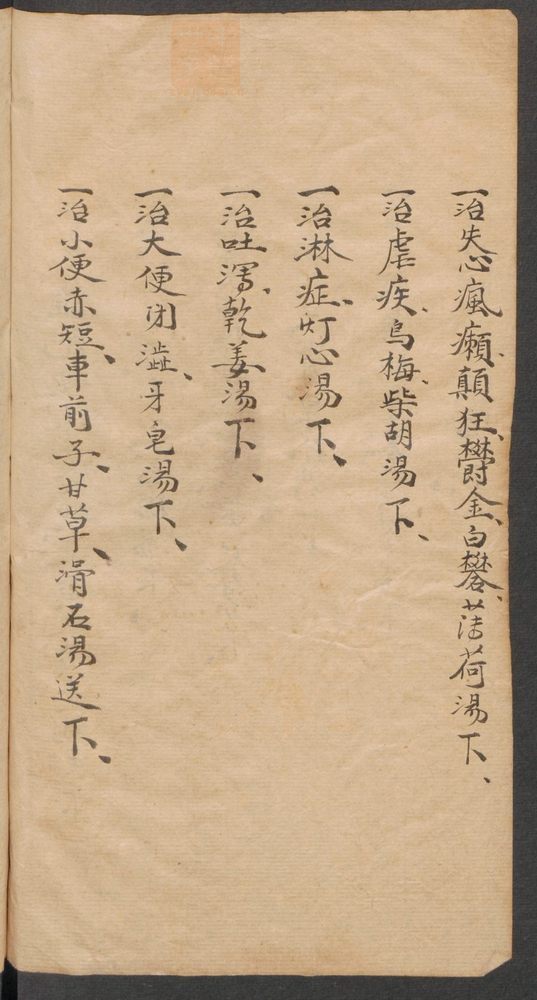 一治失心瘋癲、顛狂、欝金、白礬、薄荷湯下、
一治虐疾、烏梅、柴胡湯下、
一治淋症、灯心湯下、
一治吐瀉、乾姜湯下、
一治大便闭澁、牙皂湯下、
一治小便赤短、車前子、甘草、滑石湯送下、